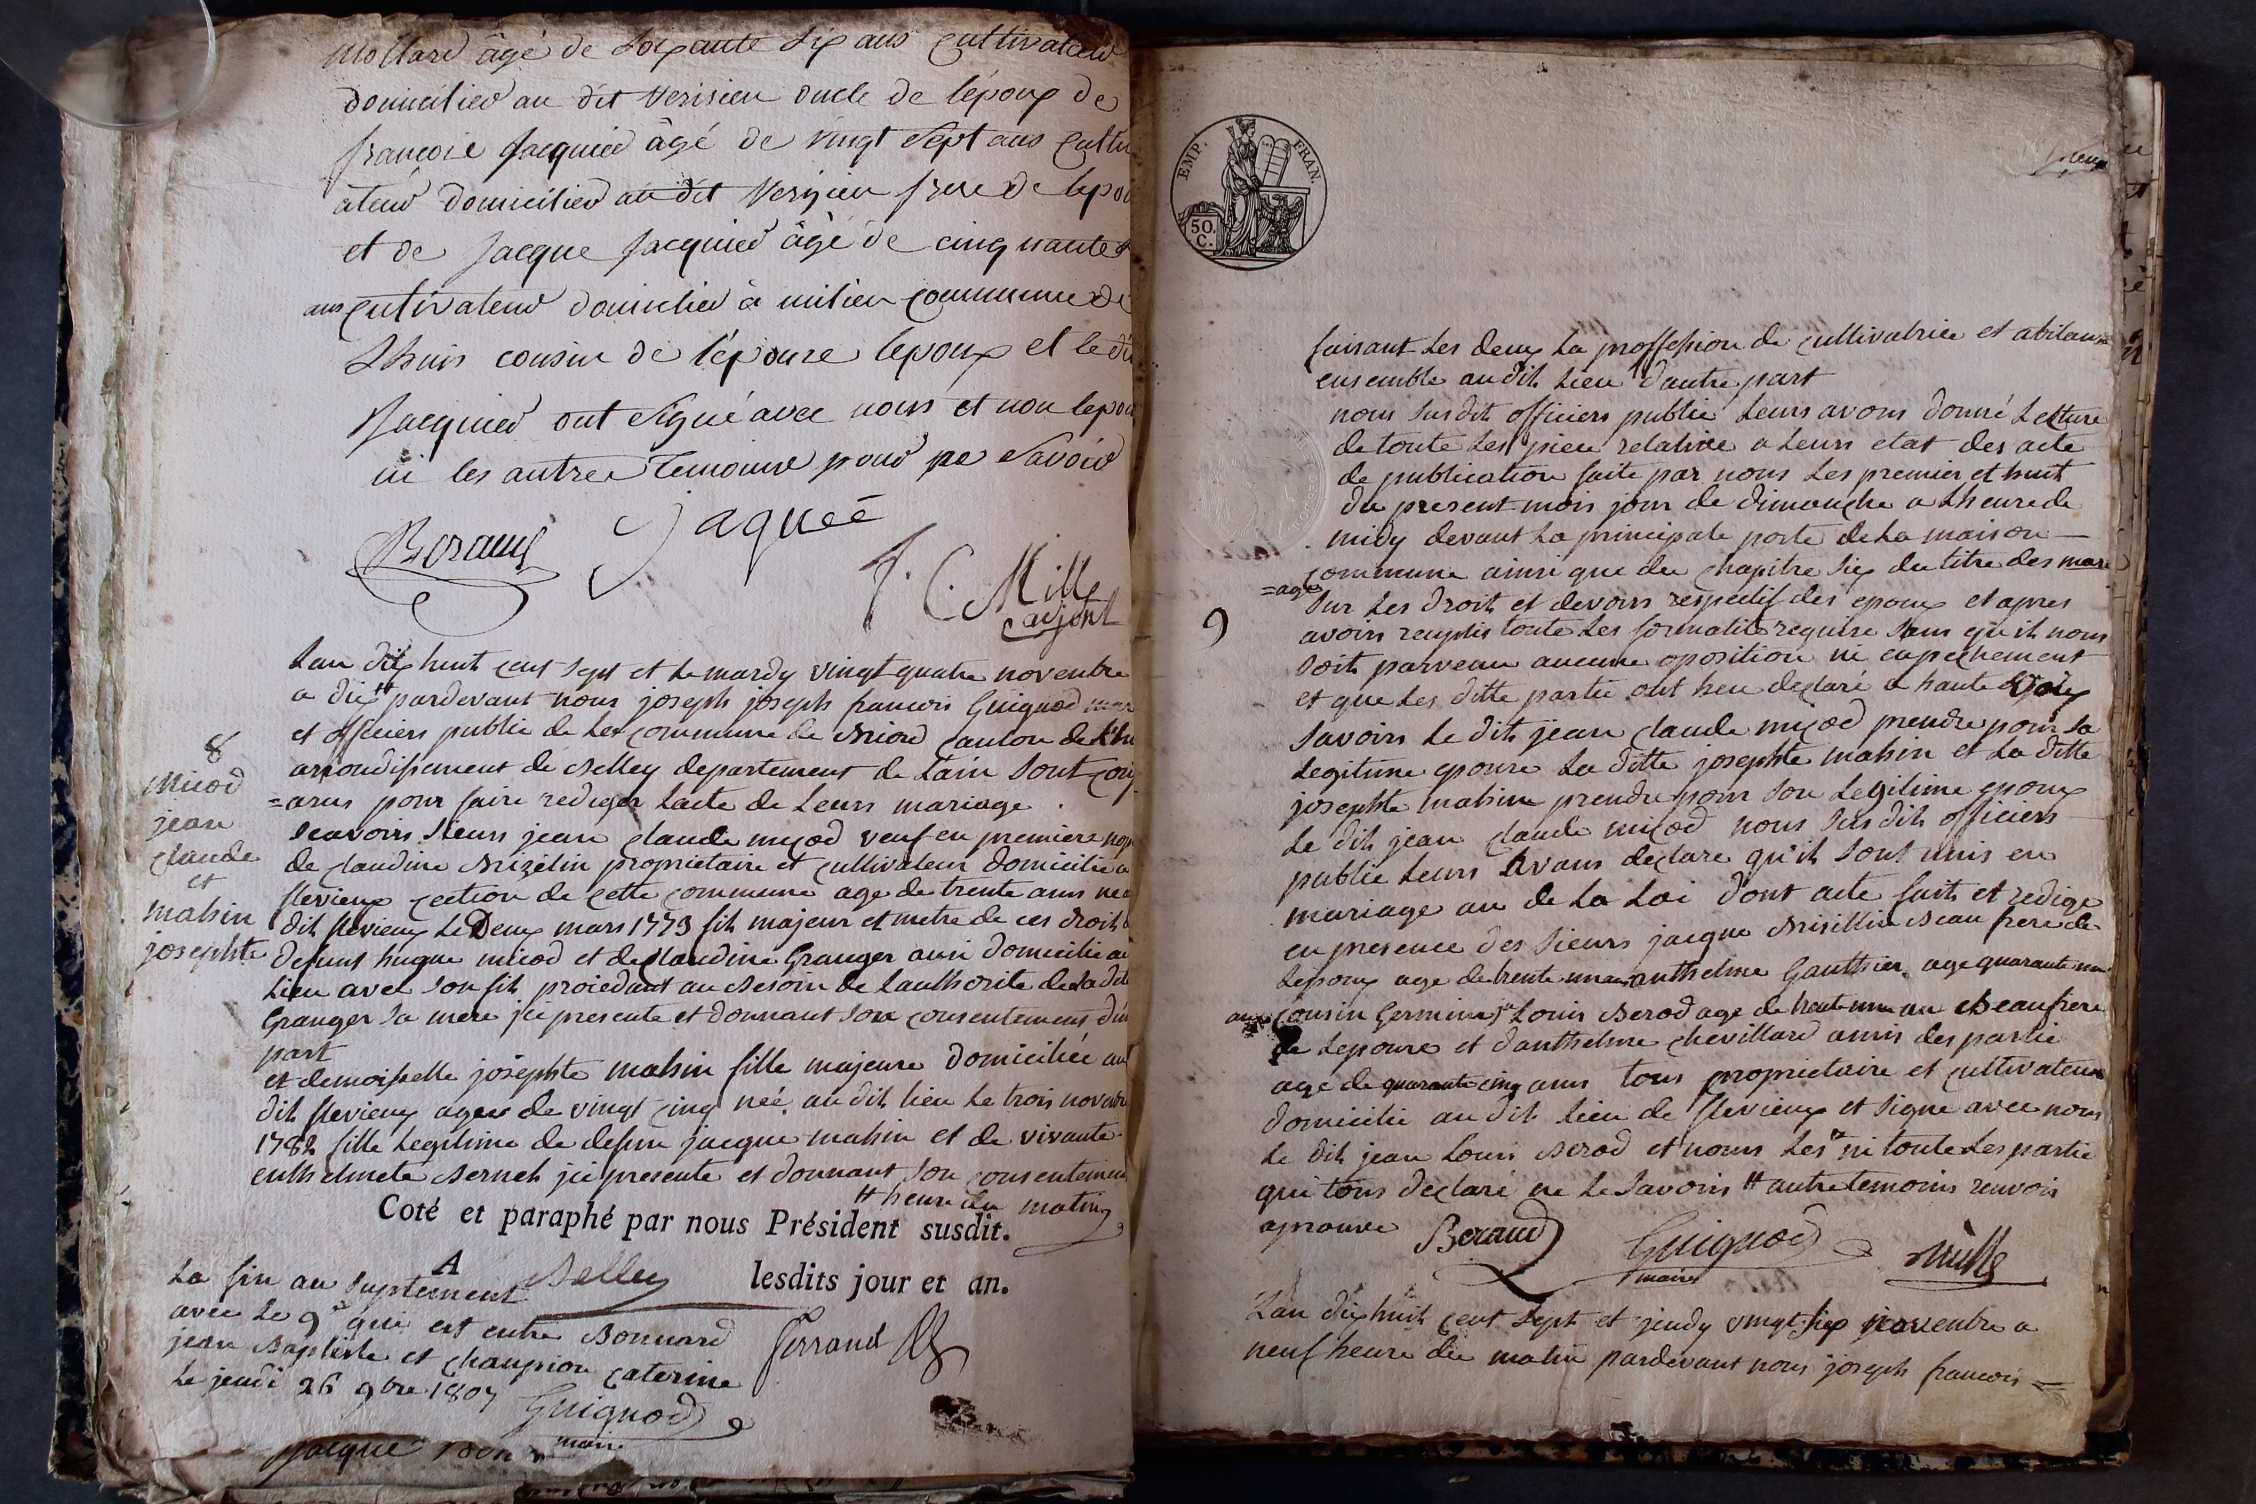 Mollard âgé de soixante six ans cultivateur
domicilier au dit Verisieu oncle de lépoux de
francoie Jacquier âgé de vingt sept ans cultiv
ateur domicilier au dit Verisieu frere de lepou
et de Jacque Jacquier âgé de cinquante
ans cultivateur domicilier à milieu commune de
Lhuis cousin de lépouse lepoux et le dit
Jacquier ont signé avec nous et non lepou
ni les autre temoins pour ne savoir
Beraud Jaquée
J. C. Mille
adjoint
Lan dix huit cent sept et le mardy vingt quatre novembre
a dix # pardevant nous joseph joseph francois Guignod mair
et officiers public de la commune de Briord canton de Lhu
arrondissement de Belley departement de Lain sont comp
=arus pour faire rediger lacte de Leurs mariage
8
Micod
jean
claude
et
mahin
josephte
scavoirs sieurs jean claude micod veuf en premiere nop
de claudine Brizelin proprietaire et cultivateur domicilie a
flevieux section de cette commune age de trente ans ne a
dit flevieux Le Deux mars 1773 fils majeur et metre de ces droits
defunt hugue micod et de claudine Granger aussi domicilie au
Lieu avec son fils procedant au besoin de lauthorite de la dite
Granger sa mere ici presente et donnant son consentement d'u
part
et demoiselle josephte mahin fille majeure domiciliée au
dit flevieux agee de vingt cinq née au dit lieu le trois novembre
1782 fille Legitime de defun jacque mahin et de vivante
enthelmete Berneh ici presente et donnant son consentement
# heure du matin
Coté et paraphé par nous Président susdit.
A Belley lesdits jour et an.
Ferrand
La fin au suplement
avec le 9e qui est entre Bonnard
jean Baptiste et champion caterine
Le jeudi 26 9bre 1807
Guignod
maire
Jacque
EMP. FRAN.
50 C.
faisant Les deux La proffession de cultivatrice et abitans
ensemble audit Lieu d'autre part
nous susdit officiers public Leurs avons donné Lecture
de toute Les piece relative a Leurs etat des acte
de publication faite par nous Les premier et huit
du present mois jour de dimanche a Lheure de
midy devant La principale porte de La maison
commune ainsi que du chapitre six du titre des mari
=age
sur Les droits et devoirs respectif des epoux et apres
9
avoirs remplis toute Les formalité requise sans qu'il nous
soit parvenu aucune oposition ni enpechement
et que Les ditte partie ont heu declaré a haute voix
savoirs Le dit jean claude micod prendre pour sa
Legitime epouse La ditte josephte mahin et La ditte
josephte mahin prendre pour son Legitime epoux
Le dit jean claude micod nous susdit officiers
public Leurs Avons declare qu'il sont unis en
mariage au de La Loi dont acte fait et redige
en presence des sieurs jacque Brisillin Beau frere de
Lepoux age de trente un ans anthelme Gauthier age quarante un
ans cousin Germin Louis Berod age de trente un an Beau frere
de Lepouse et danthelme chevillard amis des partie
age de quarante cinq ans tous proprietaire et cultivateur
domicilie au dit Lieu de flevieux et signe avec nous
Le dit jean Louis Berod et nomm Les ni toute Les partie
qui tous declaré ne Le savoirs # autre temoins renvois
aprouve
Beraud Guignod Mille
maire
Lan dix huit cent sept et jeudy vingt six novembre a
neuf heure du matin pardevant nous joseph francois =